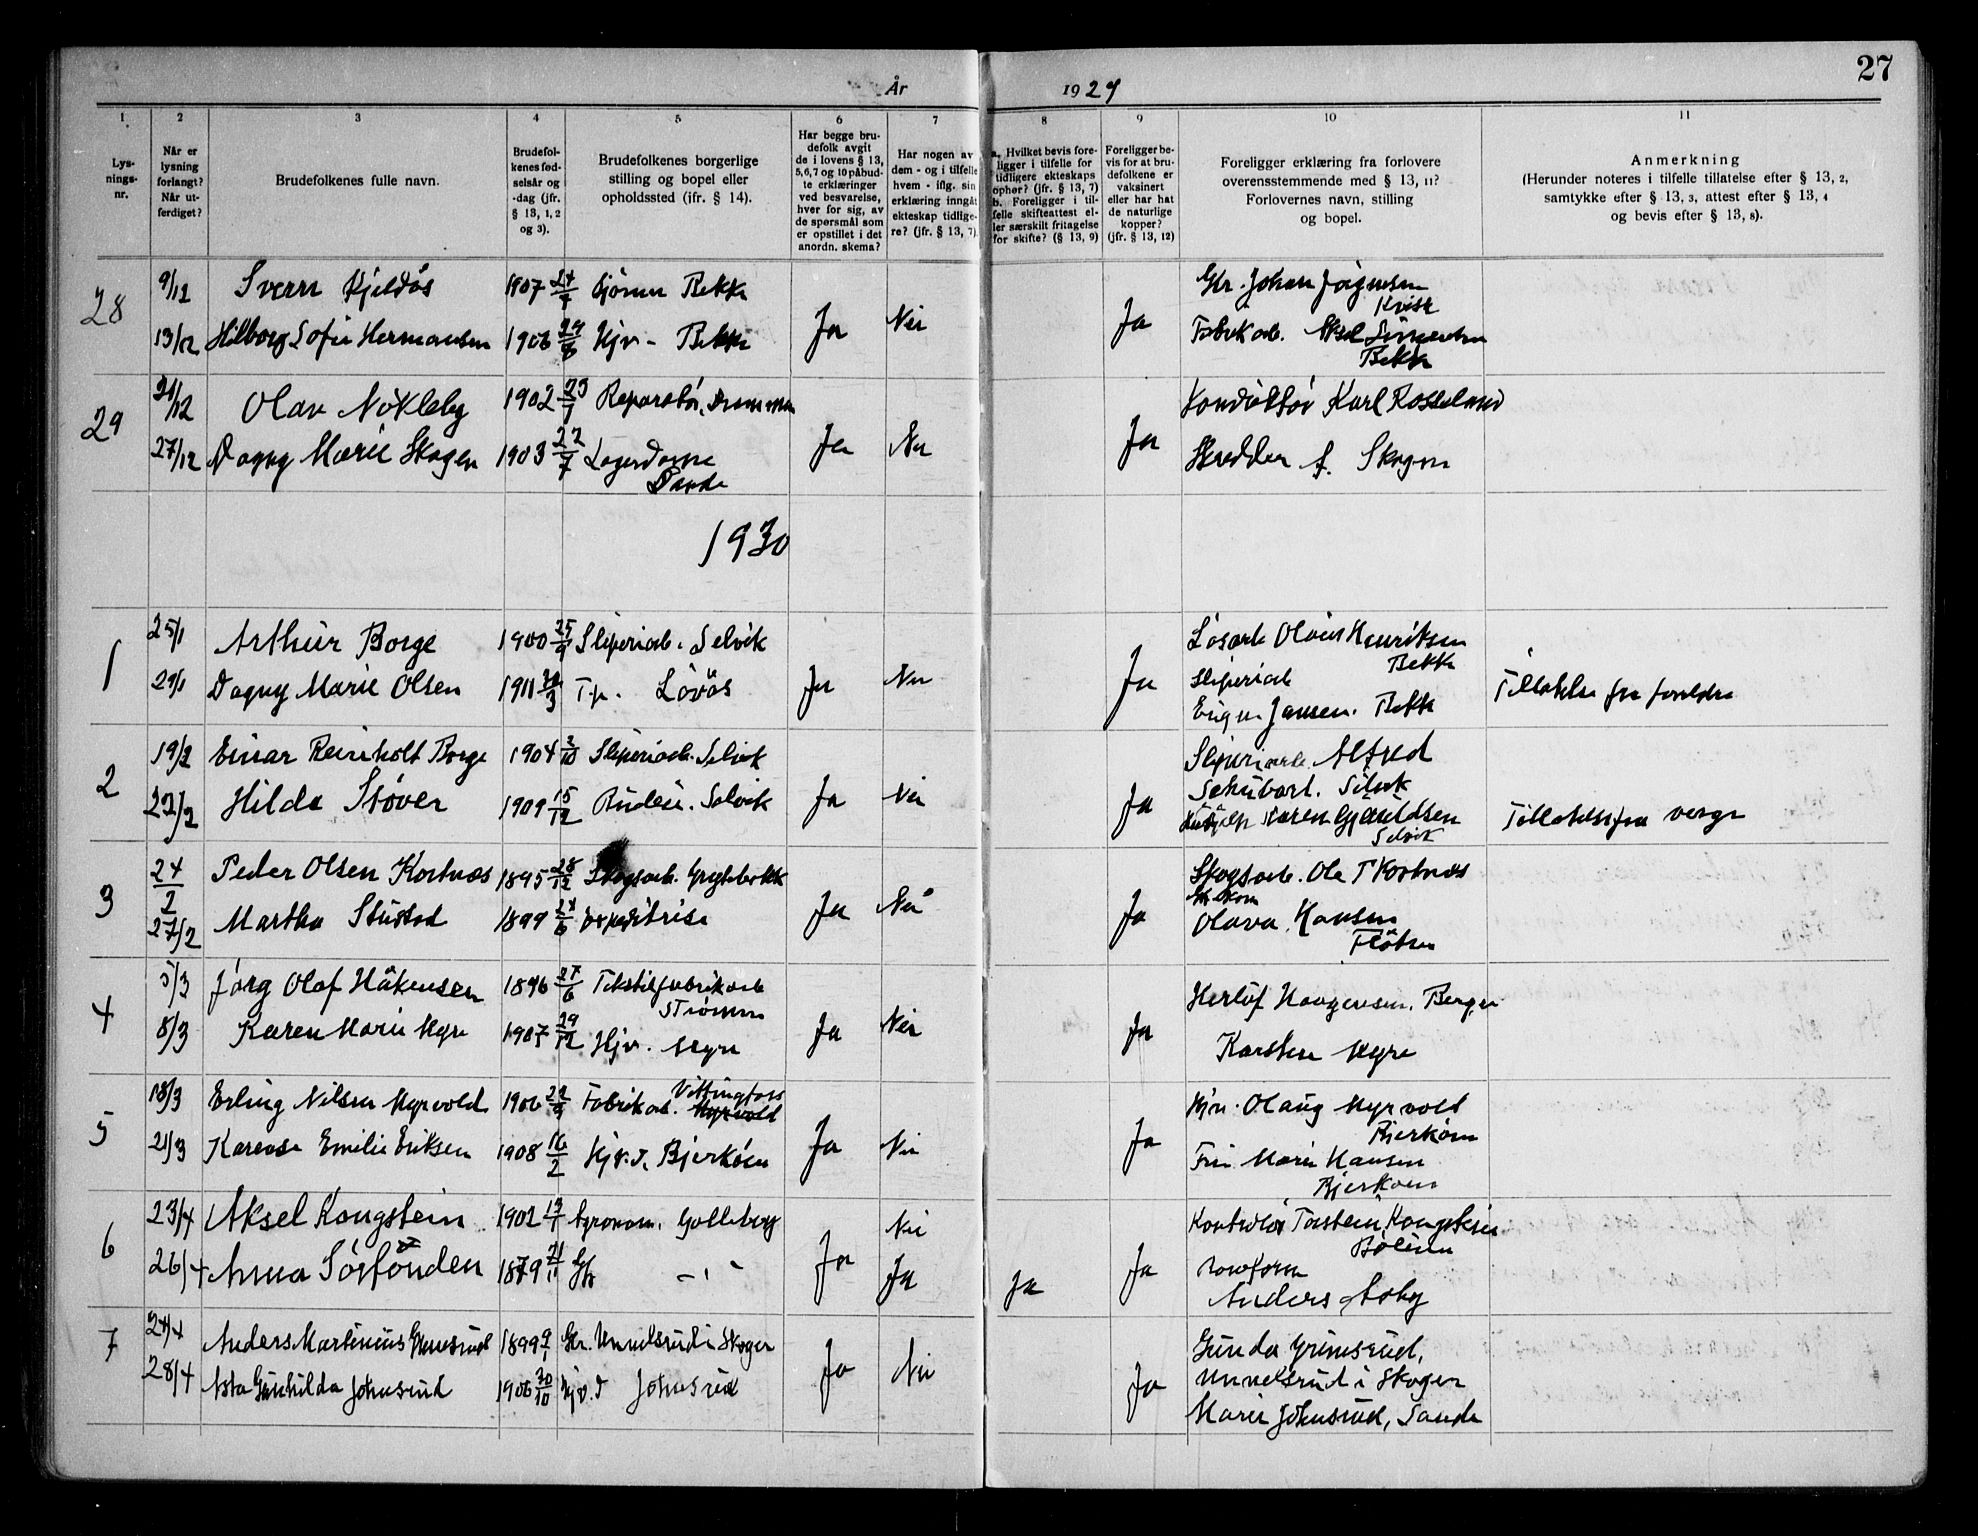 27
År 1929
1. 2 3 4 5 6 7 8 9 10 11
Lys-
nings-
nr.
Når er
lysning
forlangt?
Når ut-
ferdiget?
Brudefolkenes fulle navn.
Brudefol-
kenes fød-
selsår og
-dag (jfr.
§ 13, 1, 2
og 3).
Brudefolkenes borgerlige
stilling og bopel eller
opholdssted (ifr. § 14).
Har begge bru-
defolk avgit
de i lovens § 13,
5,6,7 og 10 påbud-
te erklæringer
ved besvarelse,
hver for sig, av
de spørsmål som
er opstillet i det
anordn. skema?
Har nogen av
dem - og i tilfelle
hvem - iflg. sin
erklæring inngåt
ekteskap tidlige-
re? (jfr. § 13, 7).
a. Hvilket bevis fore-
ligger i tilfelle for
tidligere ekteskaps
ophør? (jfr. § 13, 7)
b. Foreligger i til-
felle skifteattest el-
ler særskilt fritagelse
for skifte? (§ 13, 9)
Foreligger be-
vis for at bru-
defolkene er
vaksinert
eller har hat
de naturlige
kopper?
(jfr. § 13, 12)
Foreligger erklæring fra forlovere
overensstemmende med § 13, 11?
Forlovernes navn, stilling
og bopel.
Anmerkning
(Herunder noteres i tilfelle tillatelse efter § 13, 2,
samtykke efter § 13, 3, attest efter § 13, 4
og bevis efter § 13, 8).
28
9/12 Sverre Kjeldås 1907 Bekk
13/12 Hilborg Sofie Hermansen 1906 Hjv - Bekk Ja Nei Ja
Gbr. Johan Jørgensen
Kvisle
Fabrikarb.
Bekk
29
21/12 Olav Nökleby 1902 23/1 Reparatör, Drammen
27/12 Dagny Marie Skogen 1903 22/7 Lagerdame
Sande
Ja Nei Ja
Konduktör Karl Rosseland
Skredder Skogen
1930
1
25/1 Arthur Borge 1900 25/9 Sliperiarb. Selvik
29/1 Dagny Marie Olsen 1911 /3 Tp. Lövås Ja Nei Ja
Løsarb Henriksen
Bekk
Sliperiarb
Jansen. Bekk
Tillatelse fra foreldre
2
19/2 Einar Reinholt Borge 1904 /10 Sliperiarb. Selvik
22/2 Hilda Støver 1909 15/12 Budeie. Selvik Ja Nei Ja
Sliperiarb. Alfred
Schubart. Selvik
Karen Gjæruldsen
Selvik
Tillatelse fra verge
3
24/2 Peder Olsen Kortnæs 1895 28/12 Skogsarb. Grytebekk
27/2 Martha Stustad 1899 /6 expeditrise Ja Nei Ja
Skogsarb. Ole T Kortnæs
Olava Hansen
4
5/3 Jörg Olaf Håkensen 1896 27/6 Tekstilfabrikarb
Strömm
8/3 Karen Marie Myre 1907 29/12 Hjv. Myre Ja Nei Ja
Herlöf Haagensen. Berger
Karsten Myre
5
18/3 Erling Nilsen Myrvold 1906 22/9 Fabrikarb. Vittingfoss
Myrvold
21/3 Karense Emilie Eriksen 1908 16/2 Hjv.d. Bjerköen Ja Nei Ja
Hjv. Olaug Myrvold
Bjerköen
Fru Marie Hansen
Bjerkoen
6
23/4 Aksel Kongstein 1902 13/1 Agronom. Golleberg Nei
26/4 Anna Sörfonden 1879 21/11 Gb -"- Ja Ja Ja Ja
Kontrolör Torstein Kongstein
Anders Aaby
7
24/4 Anders Martinius Grimsrud 1899 9/1 Gbr. Unnelsrud i Skoger
28/4 Asta Gunhilda Johnsrud 1906 30/10 Hjv.d Johnsrud Ja Nei Ja
Gunda Grimsrud,
Unnelsrud i Skoger
Marie Johnsrud, Sande